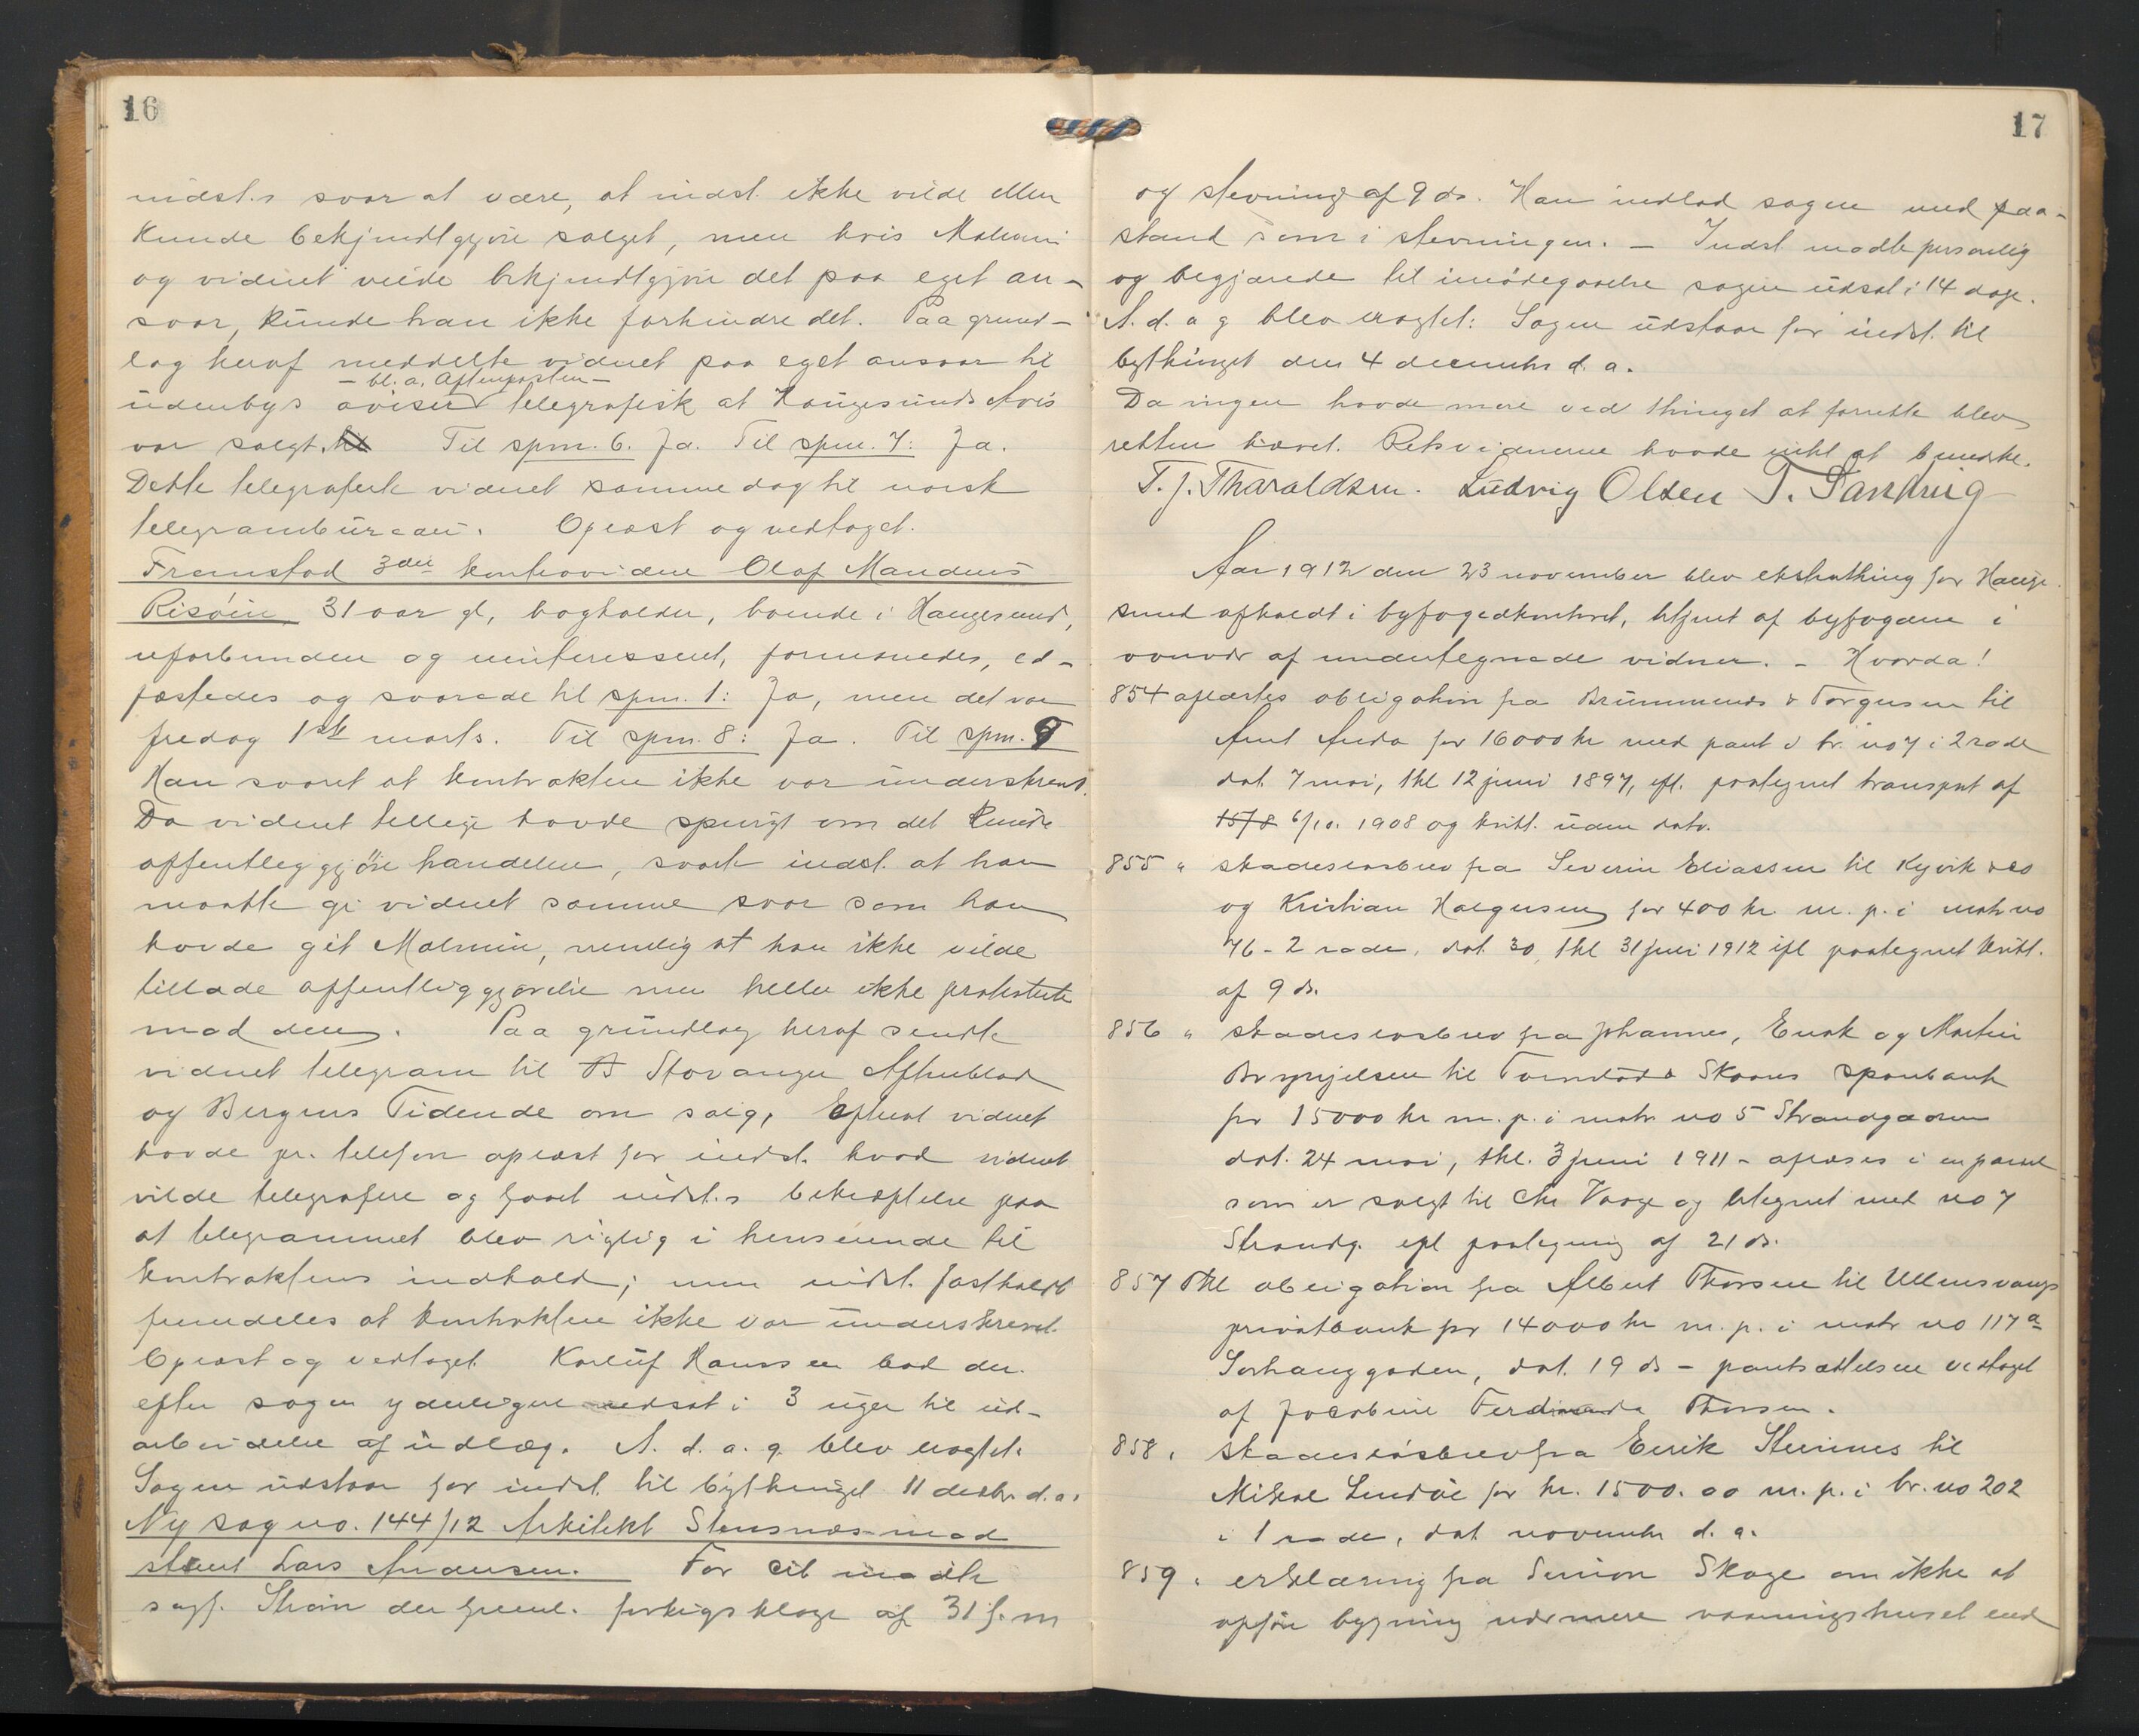 16
indst.s svar at være, at indst. ikke vilde eller
kunde bekjendtgjøre salget, men hvis Malmin
og vidnet vilde bekjendtgjøre det paa eget an-
svar, kunde han ikke forhindre det. Paa grund-
lag heraf meddelte vidnet paa eget ansvar til
- bl. a. Aftenposten -
udenbys aviser telegrafisk at Haugesunds Avis
var solgt. Til spm. 6. Ja. Til spm. 7: Ja.
Dette telegraferte vidnet samme dag til norsk
telegrambureau. Oplæst og vedtaget.
Fremstod 3die kontravidne Olaf Mandius
Risøen 31 aar gl, bogholder, boende i Haugesund,
uforbunden og uinteresseret, formanedes, ed-
fæstedes og svarede til spm. 1: Ja, men det var
fredag 1ste marts. Til spm. 8: Ja. Til spm. 9
Han svaret at kontrakten ikke var underskrevet.
Da vidnet tillige havde spurgt om det kunde
offentliggjøre handelen, svarte indst. at han
maatte gi vidnet samme svar som han
havde git Malmin, nemlig at han ikke vilde
tillade offentliggjørelse men heller ikke protestere
mod den. Paa grundlag heraf sendte
vidnet telegram til B Stavanger Aftenblad
og Bergens Tidende om salg, efterat vidnet
havde pr. telefon oplæst for indst. hvad vidnet
vilde telegrafere og faaet indst.s bekræftelse paa
at telegrammet blev rigtig i henseende til
kontraktens indhold; men indst. fastholdt
fremdeles at kontrakten ikke var underskrevet.
Oplæst og vedtaget. Karluf Hanssen bad der-
efter sagen yderligere udsat i 3 uger til ud-
arbeidelse af indlæg. A. d. a. g. blev eragtet:
Sagen udstaar for indst. til bythinget 11 decbr. d. a.
Ny sag no. 144/12 Arkitekt Stensnæs mod
Lars Andersen. For cit. mødte
sagf. Strøm der freml. forligsklage af 31 f. m
17
og stevning af 9 ds. Han indlod sagen med paa-
stand som i stevningen. - Indst mødte personlig
og begjærede til imødegaaelse sagen udsat i 14 dage.
A. d. a g blev eragtet: Sagen udstaar for indst. til
bythinget den 4 december d. a.
Da ingen havde mere ved thinget at forrette blev
retten hævet. Retsvidnerne havde intet at bemerke.
T. J. Tharaldsen. Ludvig Olsen T.
Aar 1912 den 23 november blev ekstrathing for Hauge-
sund afholdt i byfogedkontoret, betjent af byfogden i
overvær af undertegnede vidner. - Hvorda!
854 aflæstes obligation fra Brummenæs & Torgersen til
Arnt Anda for 16000 kr med pant i br. no 7 i 2 rode
dat. 7 mai, thl 12 juni 1897, efl. paategnet transport af
15/8 6/10. 1908 og kvitt. uden dato.
855 " skadesløsbrev fra Severin Eliassen til Kyvik & Co
og Kristian Haagensen for 400 kr. m. p. i matr no
76 - 2 rode, dat 30, thl 31 juli 1912 ifl paategnet kvitt.
af 9 ds.
856 " skadesløsbrev fra Johannes, Enok og Martin
Brynjelsen til Torvestad & Skaares sparebank
for 15000 kr m. p. i matr no 5 Strandgaden
dat. 24 mai, thl. 3 juni 1911 - aflæses i en parcel
som er solgt til Chr Vaage og betegnet med no 7
Strandg. efl paategning af 21 ds.
857 Thl obligation fra Albert Thorsen til Ullensvangs
privatbank for 14000 kr m. p. i matr no 117 a
Sørhauggaden, dat. 19 ds - pantsættelsen vedtaget
af Jacobine Ferdinanda Thorsen.
858 " skadesløsbrev fra Eerik Steinnes til
Mikal Lindøe for kr. 1500.00 m. p. i br. no 202
i 1 rode, dat november d. a.
859 " erklæring fra Simon Skoge om ikke at
opføre bygning nærmere vaaningshuset end